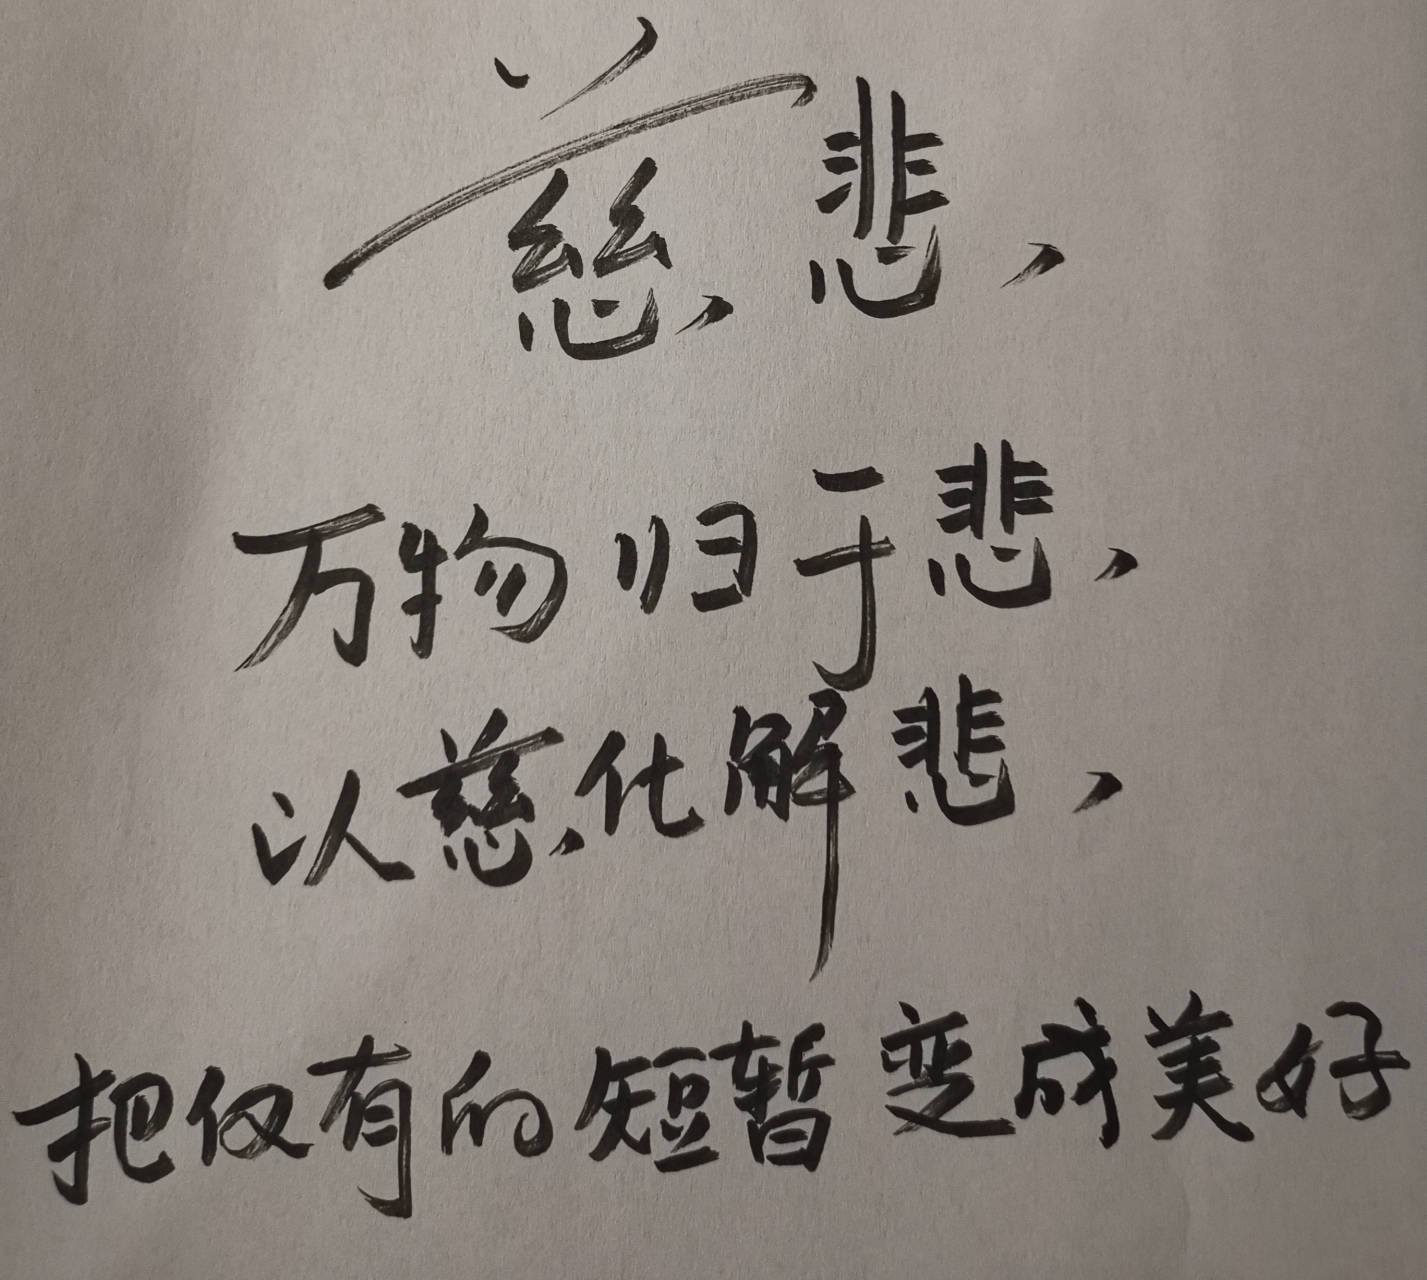 慈悲
万物归于悲
以慈化解悲
把仅有的短暂变成美好